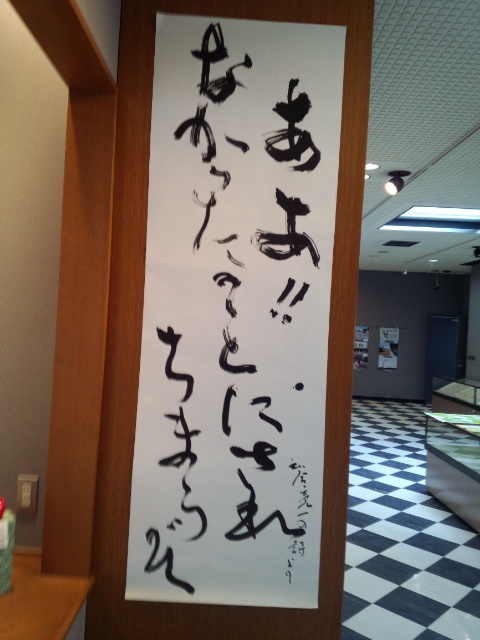 ああ!!
なかったことにされ
ちまうぞ
和合亮一の詩より